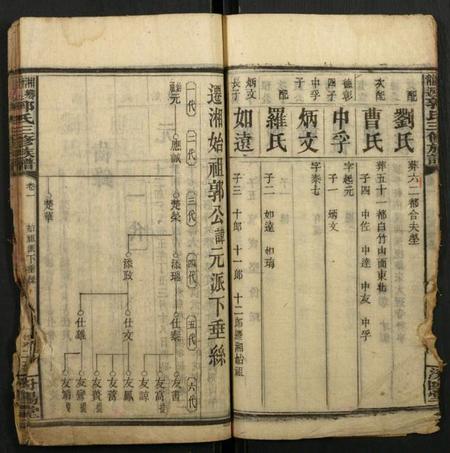 配
劉氏
葬六二都合夫塋
次配
曹氏
葬五十一都白竹山面東
子四 中佐 中逵 中友 中孚
德彰
四子
中孚
字起元
子一 炳文
中孚
子
炳文
字泰七
配
羅氏
子二 如遠 如璃
炳文
長子
如遠
子三 十郎 十一郎 十二郎遷湘始祖
遷湘始祖郭公諱元派下垂絲
一代
二代
三代
四代
五代
六代
始祖
元
應誠
楚榮
楚華
添瑞
添致
仕泰
仕文
仕雄
友書
友富
友諒
友鳳
友萬
友賢
卷一
郭氏三修族譜